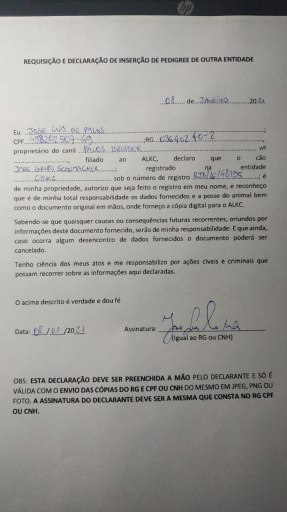 hp
REQUISIÇÃO E DECLARAÇÃO DE INSERÇÃO DE PEDIGREE DE OUTRA ENTIDADE
de JANEIRO 2021
Eu JOSE LUIS
CPF ;RG
proprietário do canil nº
, filiado ao ALKC, declaro que o cão
registrado na entidade
CBKC sob o número de registro ; é
de minha propriedade, autorizo que seja feito o registro em meu nome, e reconheço
que é de minha total responsabilidade os dados fornecidos e a posse do animal bem
como o documento original em mãos, onde forneço a cópia digital para o ALKC.
Sabendo-se que quaisquer causas ou consequências futuras recorrentes, oriundos por
informações deste documento fornecido, serão de minha responsabilidade. E que ainda,
caso ocorra algum desencontro de dados fornecidos o documento poderá ser
cancelado.
Tenho ciência dos meus atos e me responsabilizo por ações cíveis e criminais que
possam recorrer sobre as informações aqui declaradas.
O acima descrito é verdade e dou fé
Data: /2021 Assinatura:
(Igual ao RG ou CNH)
OBS: ESTA DECLARAÇÃO DEVE SER PREENCHIDA A MÃO PELO DECLARANTE E SÓ É
VÁLIDA COM O ENVIO DAS CÓPIAS DO RG E CPF OU CNH DO MESMO EM JPEG, PNG OU
FOTO. A ASSINATURA DO DECLARANTE DEVE SER A MESMA QUE CONSTA NO RG CPF
OU CNH.